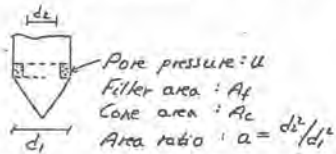 d₂
Pore pressure : u
Filter area : Af
Cone area : Ac
Area ratio : a = d₂²/d₁²
d₁